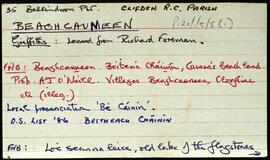 35 Ballindoon Ph. CLIFDEN R.C. PARISH
BEAGHCAUNEEN P120/5/5 (i)
Griffiths: Leased from Richard Foreman.
FNB: Beaghcauneen Beitheach Cháinín, Canavin's beach land.
Pist AJ O'Neill. Villages Beaghcauneen Cloughline
etc (illeg.)
Local pronunciation 'Bé Cáinín'
O.S. LIST '86 BEITHEACH CHÁINÍN
FNB: Loc seanna leice, old lake of the flagstones